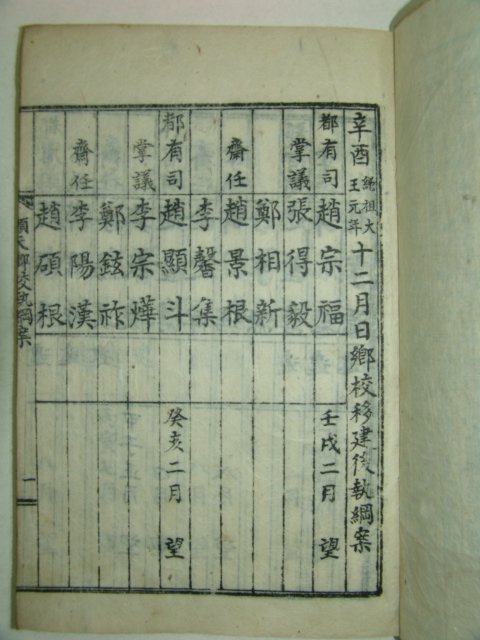 辛酉純祖大王元年十二月日鄕校移建後執綱案
都有司趙宗福 壬戌二月 望
掌議張得毅
鄭相新
齋任趙景根
李馨集
都有司趙顯斗 癸亥二月 望
掌議李宗燁
鄭鉉祚
齋任李陽漢
趙碩根
順天鄕校執綱案 一